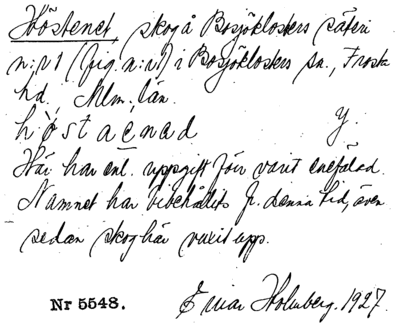 Höstenet skog å Bosjöklosters säteri
n:r 1 (fig. n:r 1) i Bosjöklosters sn., Frosta
hd., Mlm. län.
høstaenad y.
Här har enl. uppgift förr varit enefälad.
Namnet har bibehållits fr. denna tid, även
sedan skog här vuxit upp.
Nr 5548. Einar Holmberg. 1927.